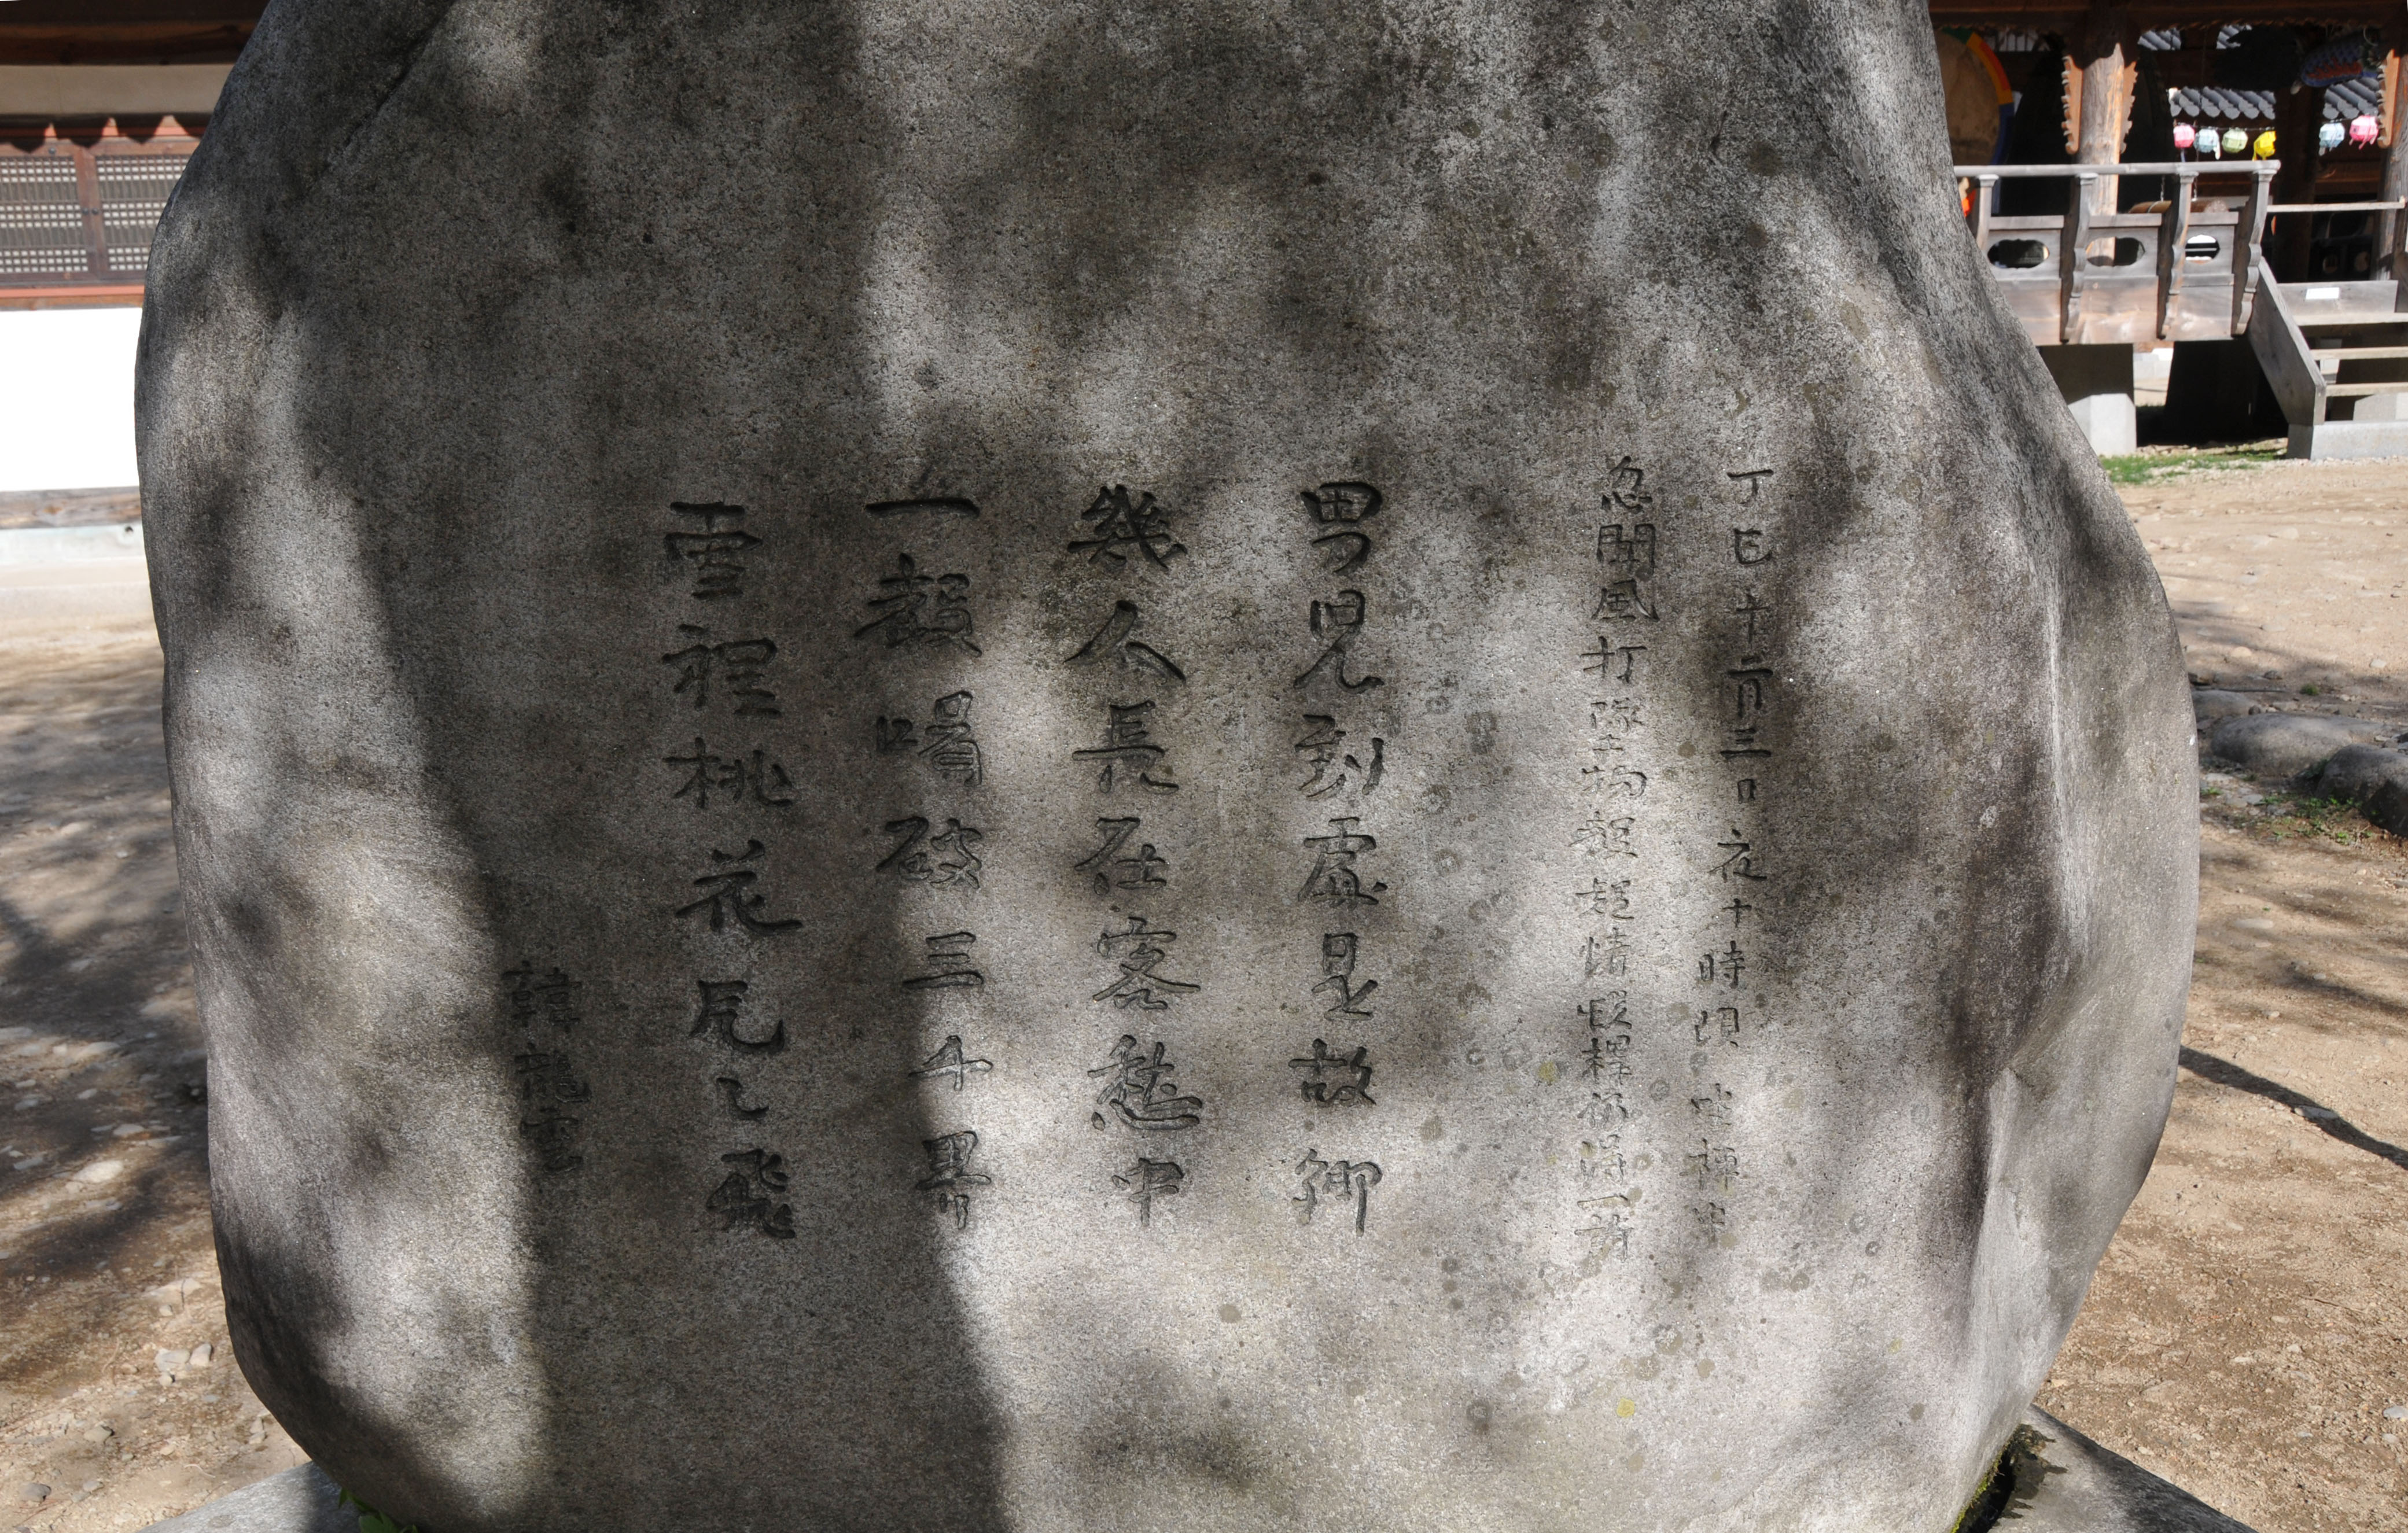 丁巳十二月三日夜十時頃坐禪中
忽聞風打墜物聲疑情頓釋仍得一詩
男兒到處是故鄉
幾人長在客愁中
一聲喝破三千界
雪裡桃花片〻飛
韓龍雲